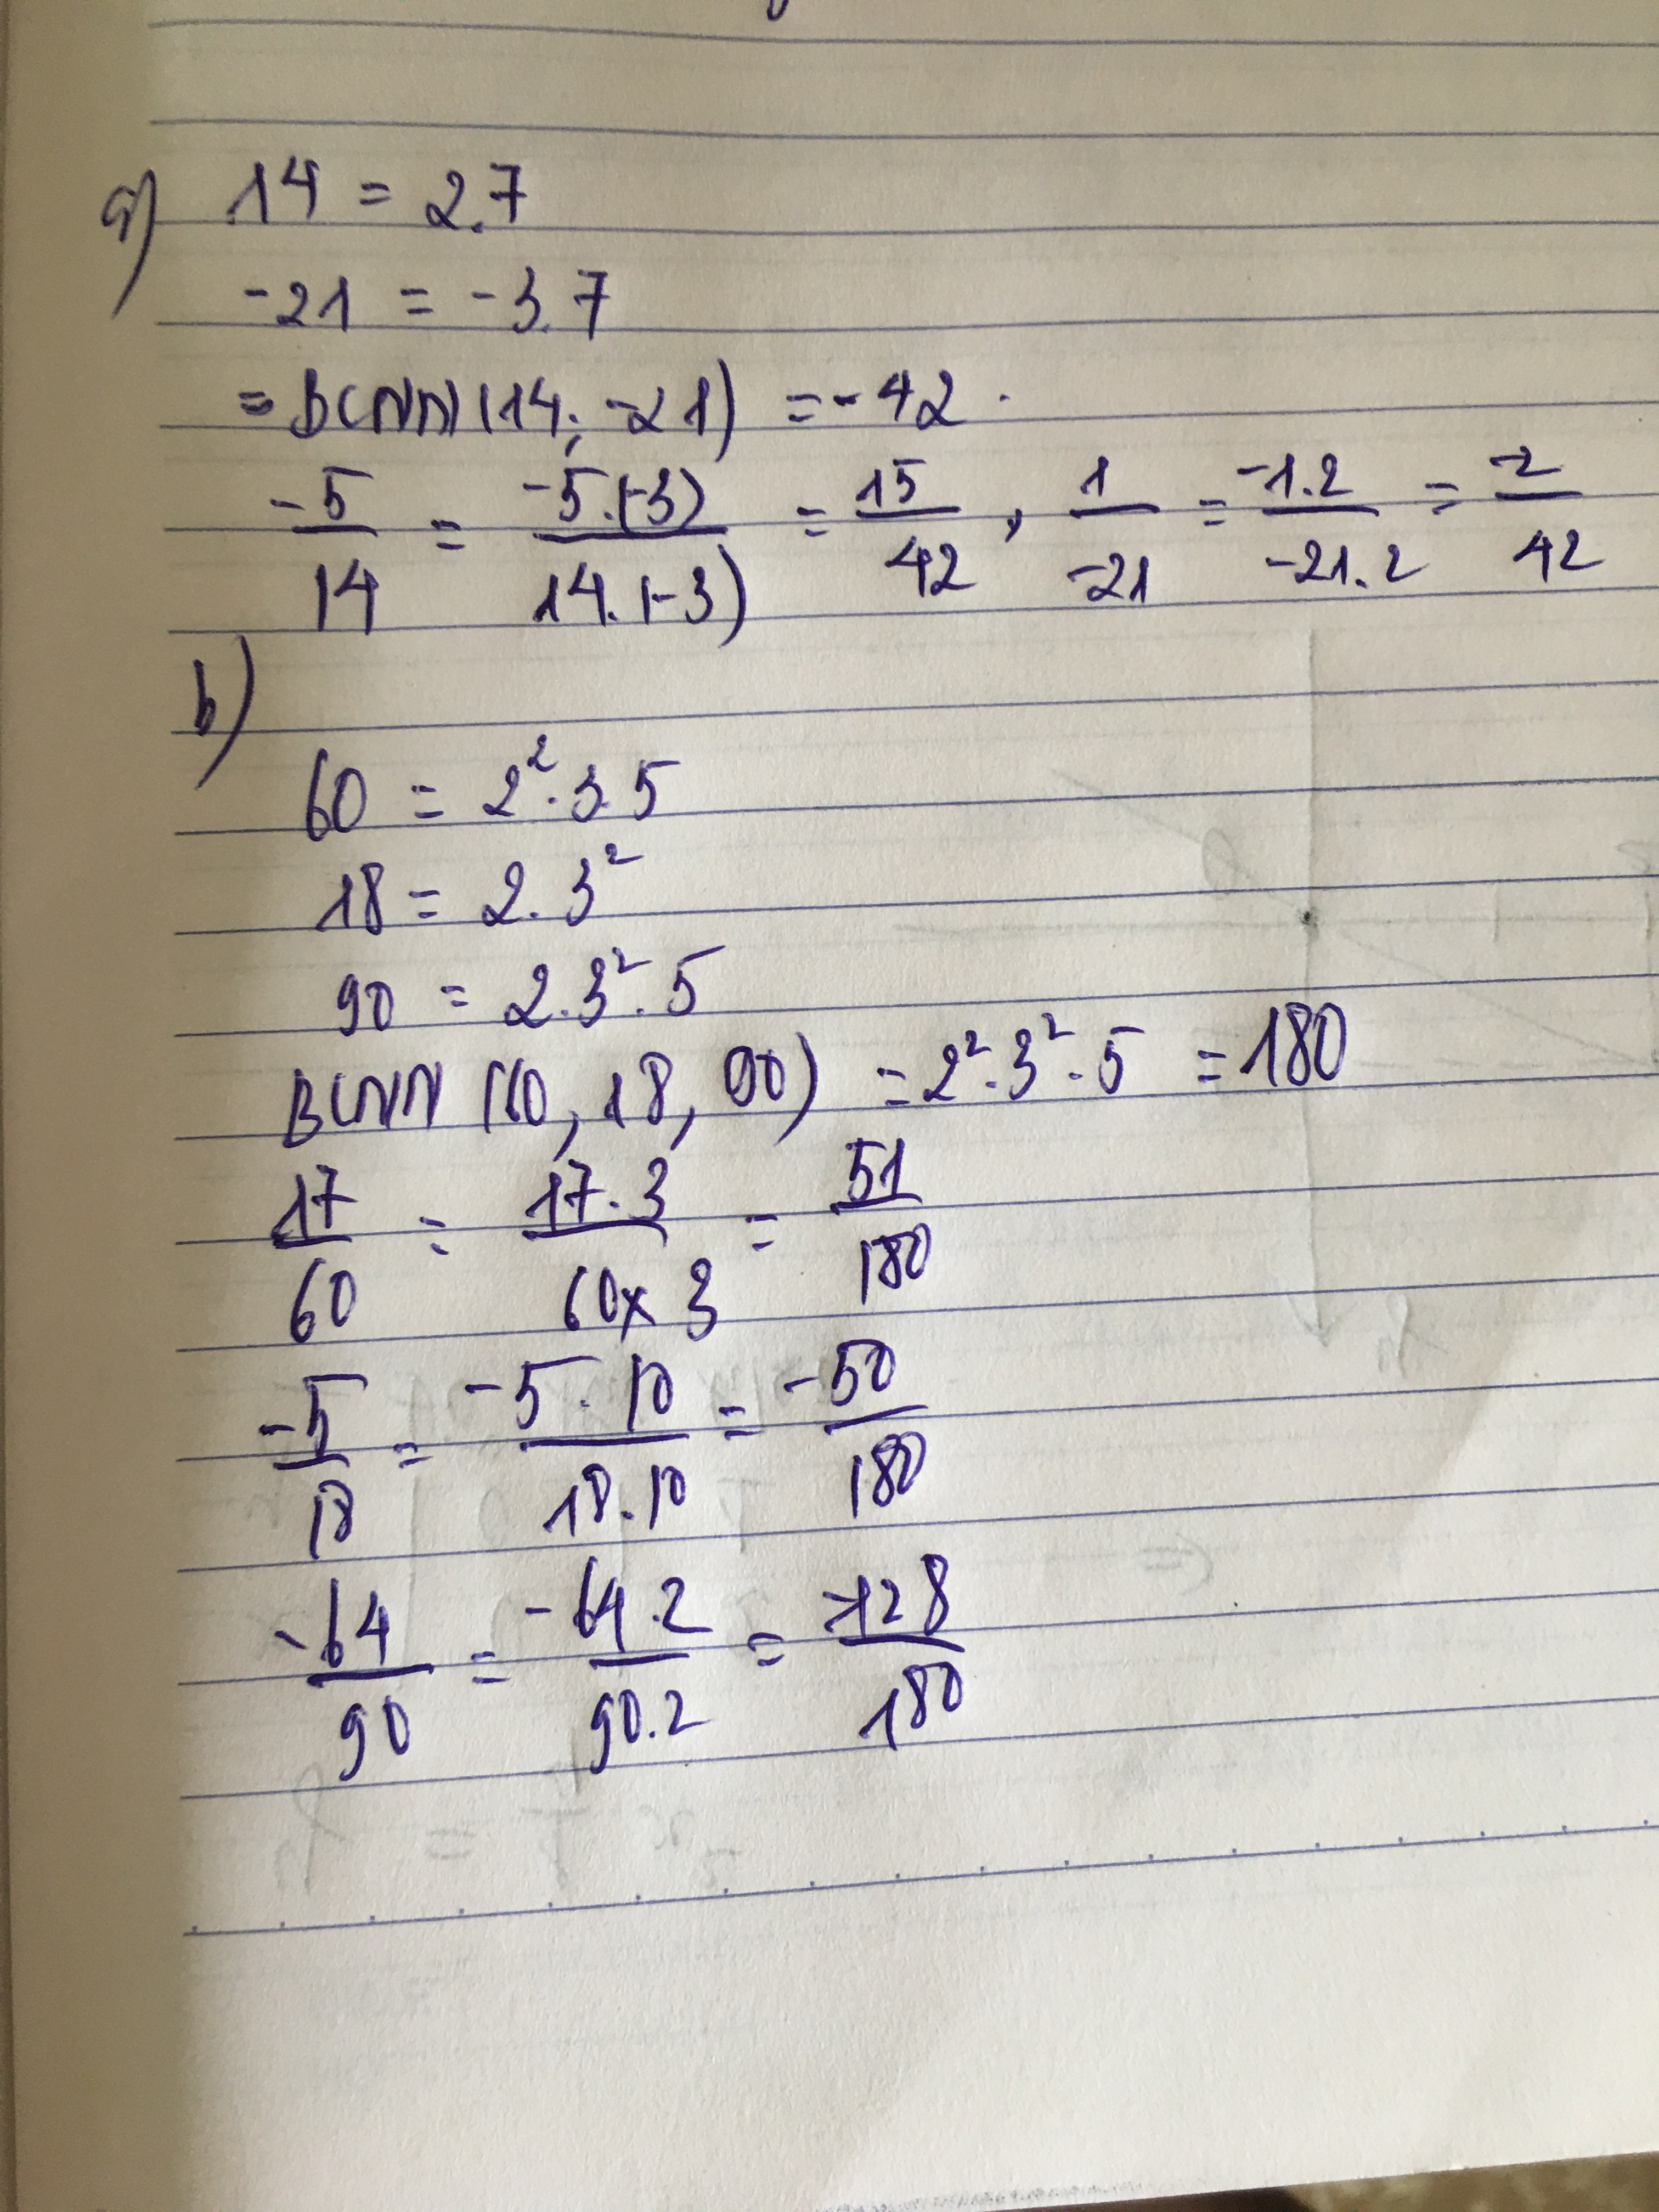 a) 14 = 2.7
-21 = -3.7
= BCNN (14; -21) = -42.
-5/14 = -5.(-3)/14.(-3) = 15/42, 1/-21 = -1.2/-21.2 = -2/42
b)
60 = 2².3.5
18 = 2.3²
90 = 2.3².5
BCNN (60, 18, 90) = 2².3².5 = 180
17/60 = 17.3/60x3 = 51/180
-5/18 = -5.10/18.10 = -50/180
-64/90 = -64.2/90.2 = -128/180